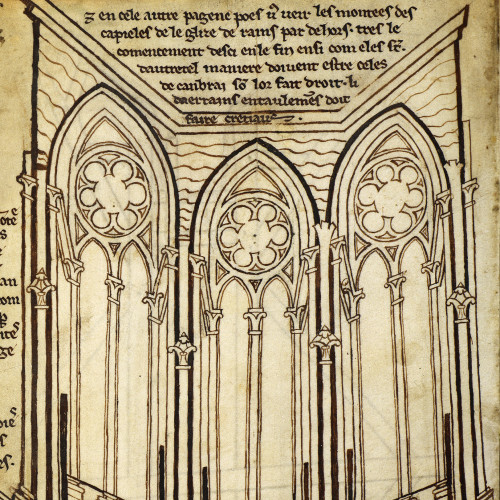 en cele autre pagene poes vͦ veir les montees des
capieles de le glize de rains par dehors. tres le
comencement desci en le fin ensi com eles sͬ.
dautretel maniere doivent estre celes
de canbrai sͦ lor fait droit. li
daerrains entaulemēs doit
faire cretiaus